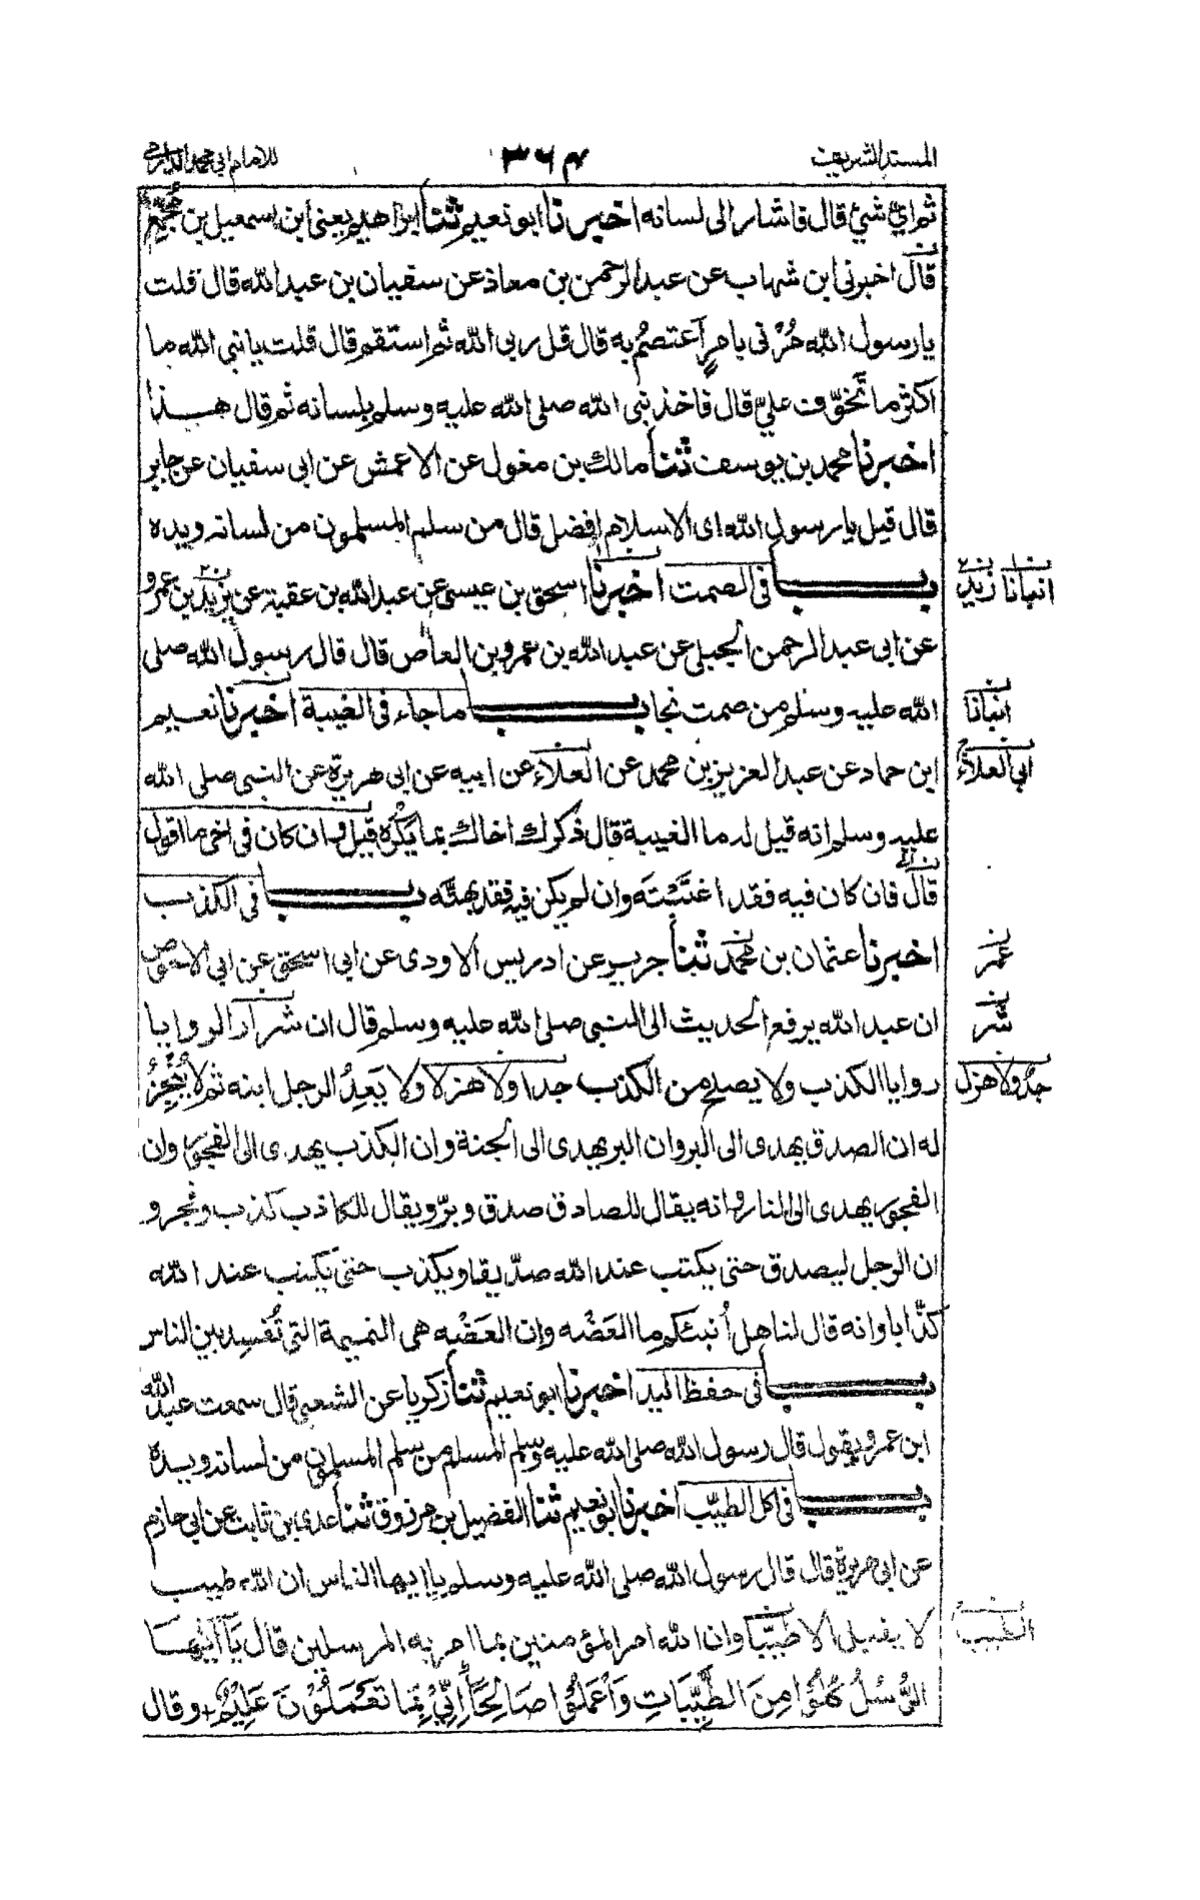 المسند الشريف ٣٦٤ للامام ابی محمد الدارمی
ثم ای شیٔ قال فاشار الی لسانه اخبرنا ابو نعیم ثنا ابراهیم یعنی ابن اسمعیل بن مجمع
قال اخبرنی ابن شهاب عن عبد الرحمن بن معاذ عن سفیان بن عبد الله قال قلت
یا رسول الله مُرْنی بامرٍ اَعتصمُ به قال قل ربی الله ثم استقم قال قلت یا نبی الله ما
اکثر ما تَخوّف علیّ قال فاخذ نبی الله صلی الله علیه وسلم بلسانه ثم قال هذا
اخبرنا محمد بن یوسف ثنا مالک بن مغول عن الاعمش عن ابی سفیان عن جابر
قال قیل یا رسول الله ای الاسلام افضل قال من سلم المسلمون من لسانه ویده
بــاب فی الصمت اخبرنا اسحق بن عیسی عن عبد الله بن عقبة عن یزید بن عمرو
انبانا زید
عن ابی عبد الرحمن الحبلی عن عبد الله بن عمرو بن العاص قال قال رسول الله صلی
الله علیه وسلم من صمت نجا بــاب ما جاء فی الغیبة اخبرنا نعیم
انبانا
ابن حماد عن عبد العزیز بن محمد عن العلاء عن ابیه عن ابی هریرة عن النبی صلی الله
ابی العلاء
علیه وسلم انه قیل له ما الغیبة قال ذکرک اخاک بما یَکْرَه قیل وان کان فی اخی ما اقول
قال فان کان فیه فقد اغتَبْتَه وان لم یکن فیه فقد بهتَّه بــاب فی الکذب
اخبرنا عثمان بن محمد ثنا جریر عن ادریس الاودی عن ابی اسحق عن ابی الاحوص
عمر
ان عبد الله یرفع الحدیث الی النبی صلی الله علیه وسلم قال ان شرار الروایا
شر
روایا الکذب ولا یصلح من الکذب جدا ولا هزلا ولا یَعِدُ الرجل ابنه ثم لا یُنْجِزُ
جدٌ ولا هزل
له ان الصدق یهدی الی البر وان البر یهدی الی الجنة وان الکذب یهدی الی الفجور وان
الفجور یهدی الی النار وانه یقال للصادق صدق وبرّ ویقال للکاذب کذب وفجر و
ان الرجل لیصدق حتی یکتب عند الله صدّیقا ویکذب حتی یکتب عند الله
کذّابا وانه قال لنا هل اُنبئکم ما العَضْه وان العَضْه هی النمیمة التی تُفسِد بین الناس
بــاب فی حفظ الید اخبرنا ابو نعیم ثنا زکریا عن الشعبی قال سمعت عبد الله
ابن عمرو یقول قال رسول الله صلی الله علیه وسلم المسلم من سلم المسلمون من لسانه ویده
بــاب فی اکل الطیّب اخبرنا ابو نعیم ثنا الفضیل بن مرزوق ثنا عدی بن ثابت عن ابی حازم
عن ابی هریرة قال قال رسول الله صلی الله علیه وسلم یا ایها الناس ان الله طیب
لا یقبل الا طیّبا وان الله امر المؤمنین بما امر به المرسلین قال یَا اَیُّهَا
الطیب
الرُّسُلُ کُلُوْا مِنَ الطَّیِّبَاتِ وَاعْمَلُوْا صَالِحًا اِنِّیْ بِمَا تَعْمَلُوْنَ عَلِیْمٌ وقال